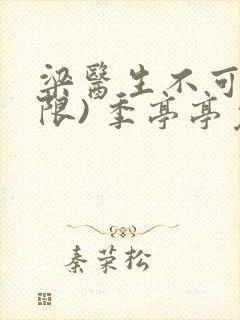 梁醫生不可
限)季亭亭
秦荣松